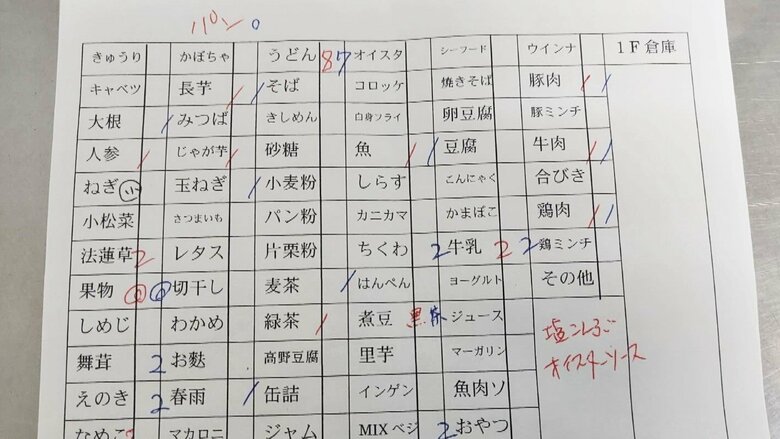 パン 0
きゅうり かぼちゃ うどん 87 オイスタ シーフード ウインナ 1F倉庫
キャベツ 長芋 / / そば コロッケ 焼きそば 豚肉 / /
大根 / みつば きしめん 白身フライ 卵豆腐 豚ミンチ
人参 / じゃが芋 / 砂糖 魚 / / 豆腐 牛肉 / /
ねぎ 玉ねぎ / 小麦粉 しらす こんにゃく 合びき
小松菜 さつまいも パン粉 カニカマ かまぼこ 鶏肉 / /
法蓮草 2 レタス 片栗粉 ちくわ 2 牛乳 2 2 鶏ミンチ
果物 切干し 麦茶 / はんぺん ヨーグルト その他
しめじ わかめ 緑茶 / 煮豆 黒 茶 ジュース 塩こんぶ
舞茸 2 お麩 高野豆腐 里芋 マーガリン オイスターソース
えのき 2 春雨 / 缶詰 インゲン 魚肉ソ
なめこ 2 マカロニ ジャム MIXベジ 2 おやつ